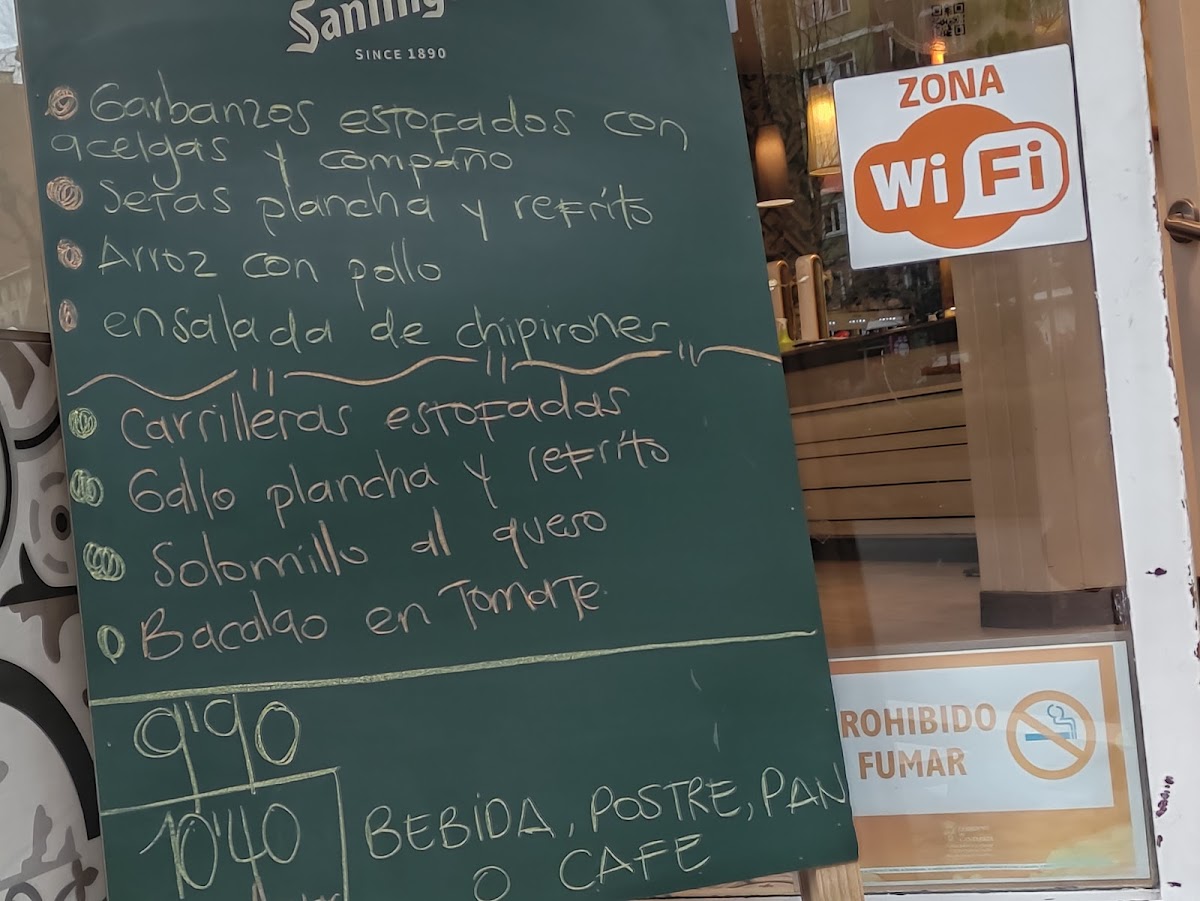 SINCE 1890
Garbanzos estofados con
acelgas y compaño
Setas plancha y refrito
Arroz con pollo
ensalada de chipirones
Carrilleras estofadas
Gallo plancha y refrito
Solomillo al queso
Bacalao en Tomate
9'90
10'40
BEBIDA, POSTRE, PAN
O CAFE
ZONA
WiFi
ROHIBIDO
FUMAR